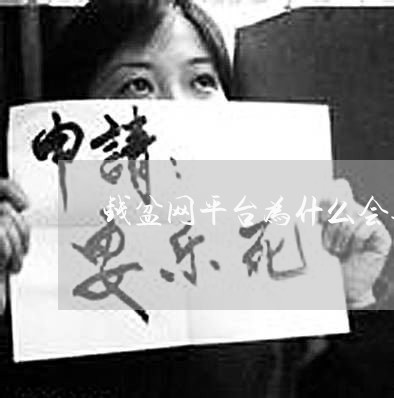 申請：
钱盆网平台為什么会
安乐死